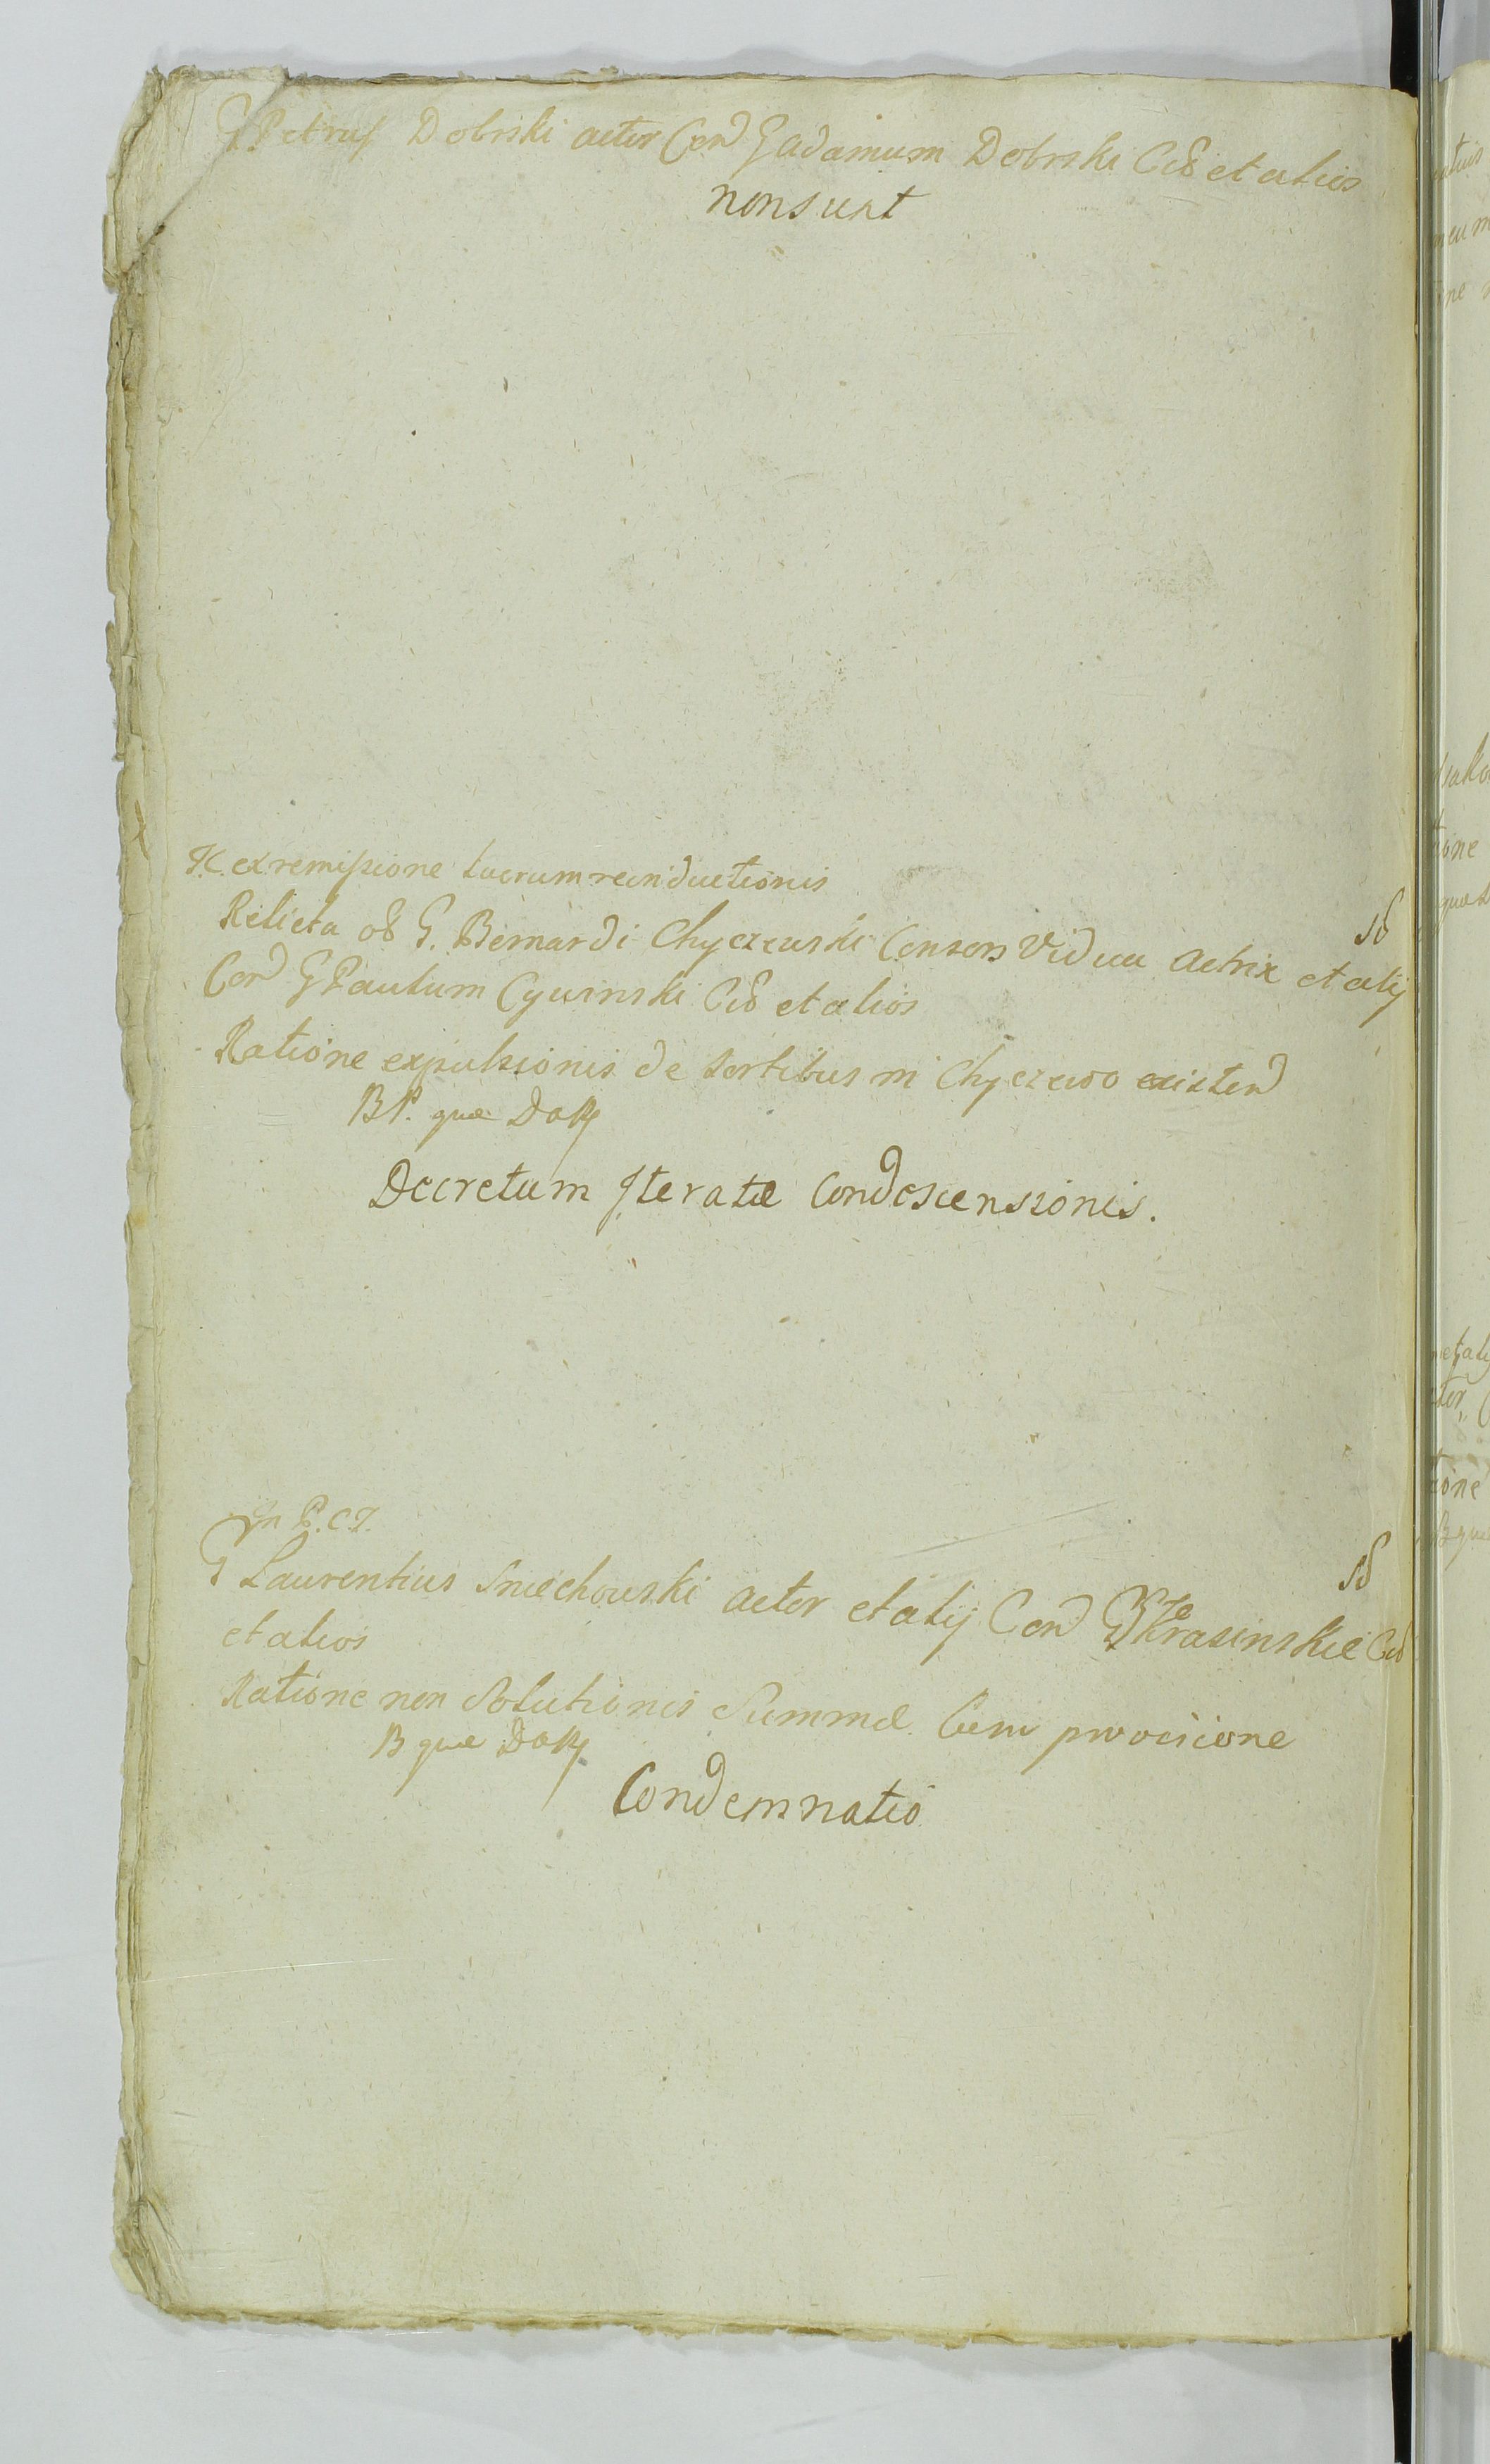 G Petrus Dobrski actor Con G Adamum Dobrski Cit et alios
non sunt
H.C. ex remissione lucrum reinductionis
sd
Relicta ob G. Bernardi Chyczewski Consors Vidua Actrix et alij
Con G Paulum Cywinski Cit et alios
Ratione expulsionis de Sortibus in Chyczewo existen
BP. quæ
Decretum Iteratæ Condescensionis.
In P.C.T.
sd
G Laurentius Sniechowski Actor et alij Con Krasinskie Cit
et alios
Ratione non Solutionis Summæ Cum provisione
B quæ
Condemnatio